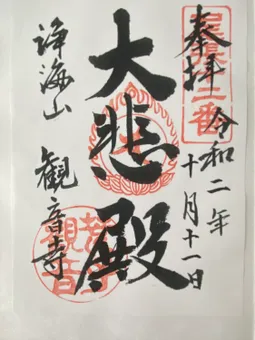 奉拝
令和二年
十月十一日
二番
大悲殿
淨海山
観音寺
観音